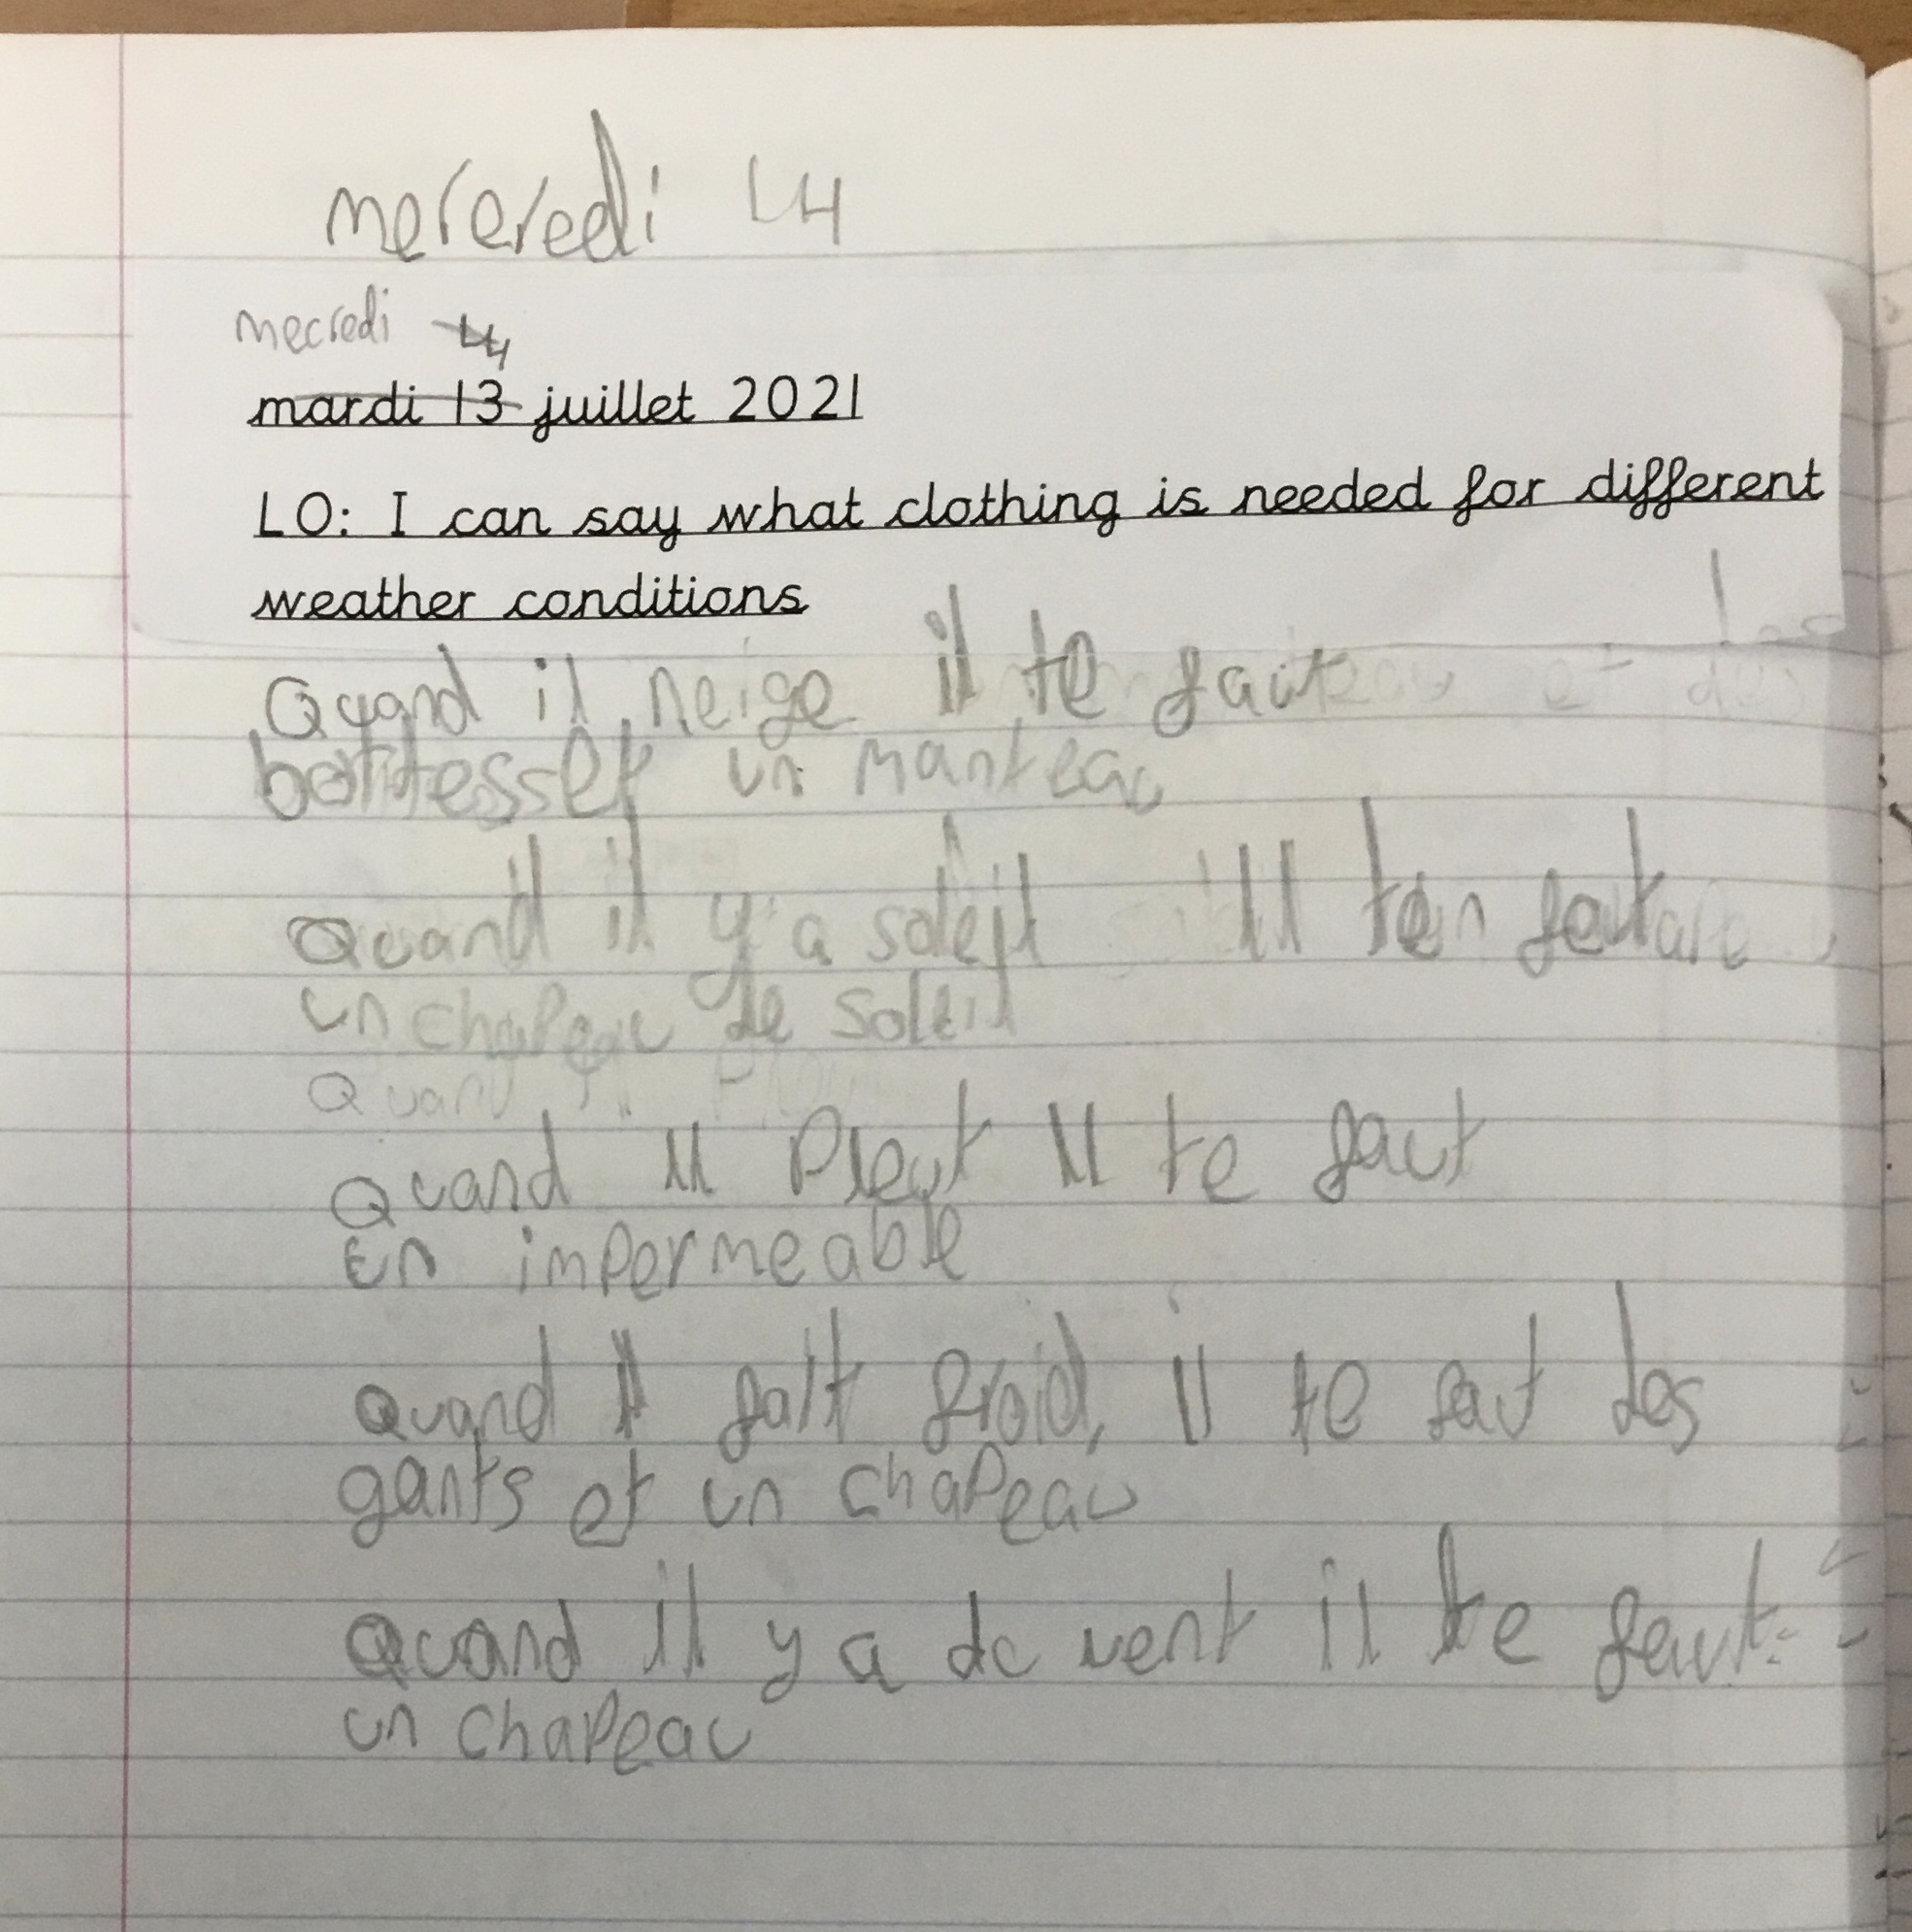 mercredi 14
mecredi 14
mardi 13 juillet 2021
LO: I can say what clothing is needed for different
weather conditions
Quand il neige il te faut des
bottesset un manteau
Quand il y a soleil il faut
un chapeau de soleil
Quand il
Quand il pleut il te faut
un impermeable
quand il fait froid, il te faut des
gants et un chapeau
Quand il y a du vent il te faut
un chapeau